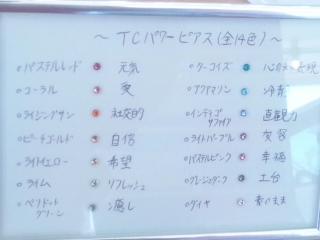 ～ TCパワーピアス(全14色) ～
パステルレッド 元気
コーラル 愛
ライジングサン 社交的
ピーチゴールド 自信
ライトイエロー 希望
ライム リフレッシュ
ペリドットグリーン 癒し
ターコイズ
アクアマリン 冷静
インディゴサファイア 直観力
ライトパープル
パステルピンク 幸福
グレージュダーク 土台
ダイヤ 素のまま